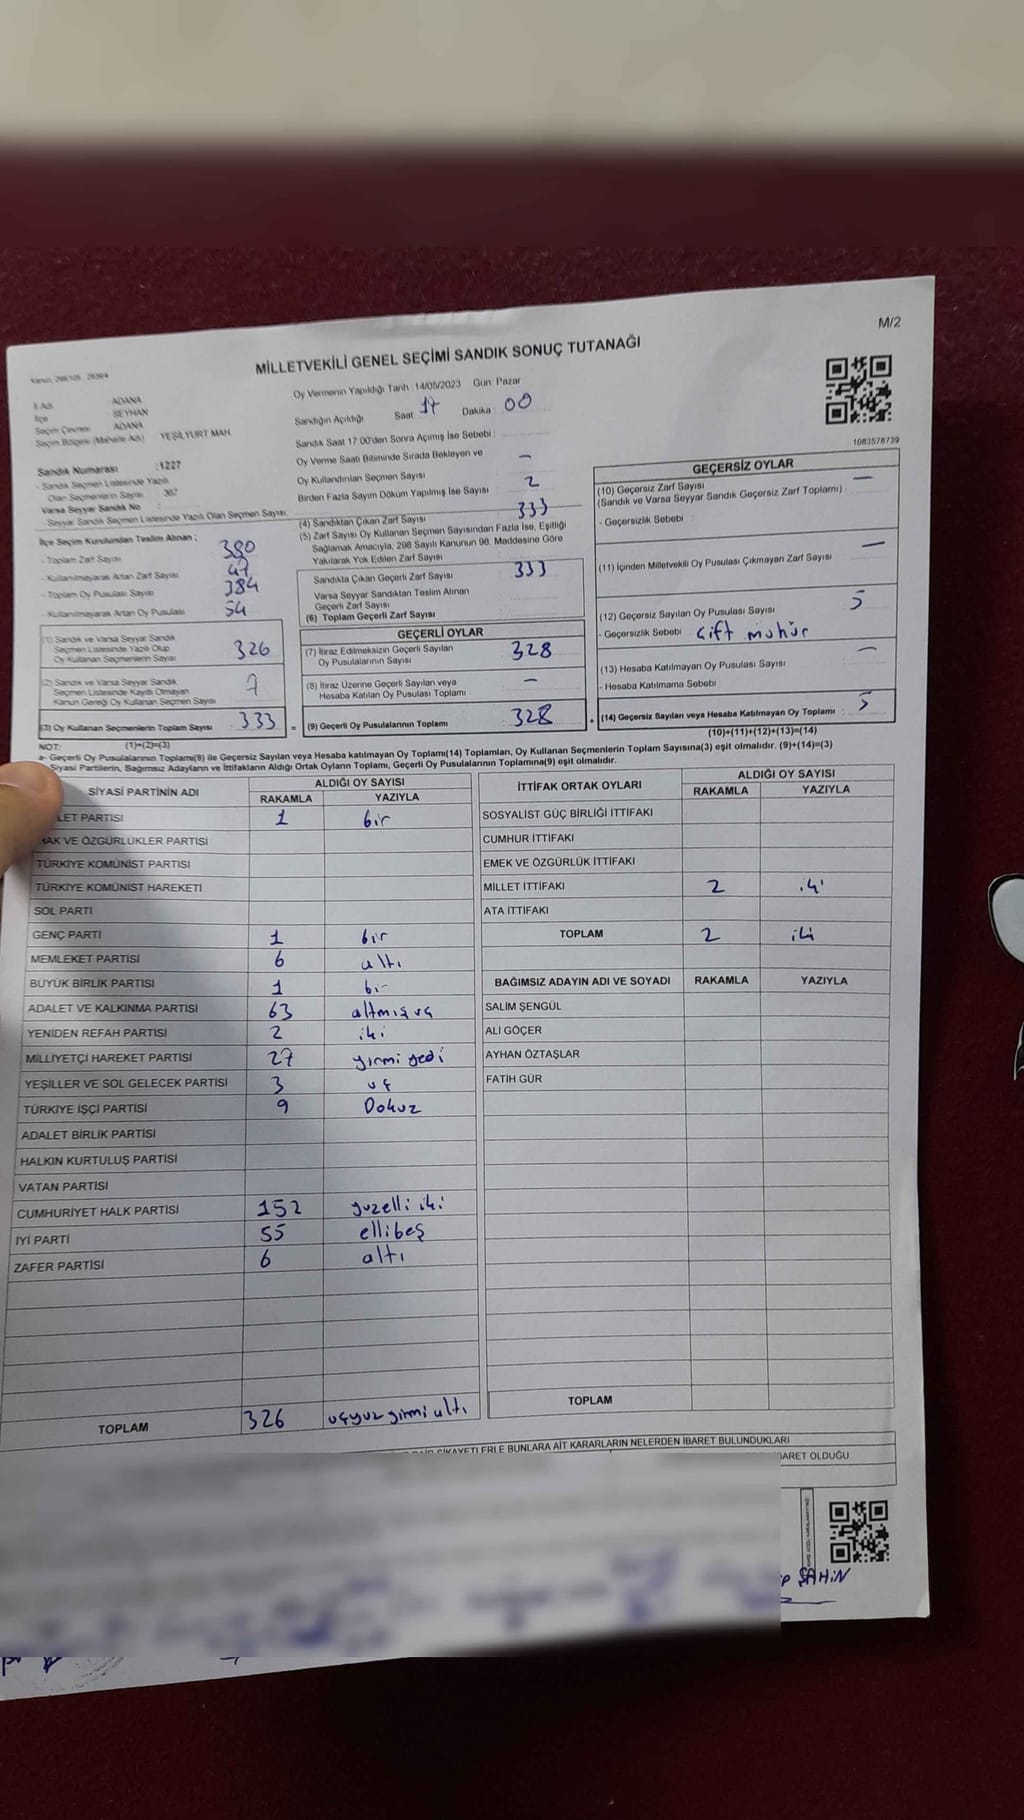 M/2
MİLLETVEKİLİ GENEL SEÇİMİ SANDIK SONUÇ TUTANAĞI
1083578739
İl Adı ADANA
İlçe SEYHAN
Seçim Çevresi ADANA
Seçim Bölgesi (Mahalle Adı) YEŞİLYURT MAH
Sandık Numarası :1227
- Sandık Seçmen Listesinde Yazılı
Olan Seçmenlerin Sayısı : 367
Varsa Seyyar Sandık No
- Seyyar Sandık Seçmen Listesinde Yazılı Olan Seçmen Sayısı
İlçe Seçim Kurulundan Teslim Alınan ;
- Toplam Zarf Sayısı 380
- Kullanılmayarak Artan Zarf Sayısı 47
- Toplam Oy Pusulası Sayısı 384
- Kullanılmayarak Artan Oy Pusulası 54
(1) Sandık ve Varsa Seyyar Sandık
Seçmen Listesinde Yazılı Olup
Oy Kullanan Seçmenlerin Sayısı 326
(2) Sandık ve Varsa Seyyar Sandık
Seçmen Listesinde Kayıtlı Olmayan
Kanun Gereği Oy Kullanan Seçmen Sayısı 7
(3) Oy Kullanan Seçmenlerin Toplam Sayısı 333 =
Oy Vermenin Yapıldığı Tarih :14/05/2023 Gün: Pazar
Sandığın Açıldığı Saat 17 Dakika : 00
Sandık Saat 17:00'den Sonra Açımış İse Sebebi :
Oy Verme Saati Bitiminde Sırada Bekleyen ve
Oy Kullandırılan Seçmen Sayısı –
Birden Fazla Sayım Döküm Yapılmış İse Sayısı 2
(4) Sandıktan Çıkan Zarf Sayısı 333
(5) Zarf Sayısı Oy Kullanan Seçmen Sayısından Fazla İse, Eşitliği
Sağlamak Amacıyla, 298 Sayılı Kanunun 98. Maddesine Göre
Yakılarak Yok Edilen Zarf Sayısı
Sandıkta Çıkan Geçerli Zarf Sayısı 333
Varsa Seyyar Sandıktan Teslim Alınan
Geçerli Zarf Sayısı
(6) Toplam Geçerli Zarf Sayısı
GEÇERLİ OYLAR
(7) İtiraz Edilmeksizin Geçerli Sayılan
Oy Pusulalarının Sayısı 328
(8) İtiraz Üzerine Geçerli Sayılan veya
Hesaba Katılan Oy Pusulası Toplamı –
(9) Geçerli Oy Pusulalarının Toplamı 328 +
GEÇERSİZ OYLAR
(10) Geçersiz Zarf Sayısı –
(Sandık ve Varsa Seyyar Sandık Geçersiz Zarf Toplamı)
- Geçersizlik Sebebi :
(11) İçinden Milletvekili Oy Pusulası Çıkmayan Zarf Sayısı –
(12) Geçersiz Sayılan Oy Pusulası Sayısı 5
- Geçersizlik Sebebi çift mühür
(13) Hesaba Katılmayan Oy Pusulası Sayısı –
- Hesaba Katılmama Sebebi
(14) Geçersiz Sayılan veya Hesaba Katılmayan Oy Toplamı : 5
(10)+(11)+(12)+(13)=(14)
NOT: (1)+(2)=(3)
a- Geçerli Oy Pusulalarının Toplamı(9) ile Geçersiz Sayılan veya Hesaba katılmayan Oy Toplamı(14) Toplamları, Oy Kullanan Seçmenlerin Toplam Sayısına(3) eşit olmalıdır. (9)+(14)=(3)
Siyasi Partilerin, Bağımsız Adayların ve İttifakların Aldığı Oyların Toplamı, Geçerli Oy Pusulalarının Toplamına(9) eşit olmalıdır.
SİYASİ PARTİNİN ADI ALDIĞI OY SAYISI
RAKAMLA YAZIYLA
LET PARTİSİ 1 bir
AK VE ÖZGÜRLÜKLER PARTİSİ
TÜRKİYE KOMÜNİST PARTİSİ
TÜRKİYE KOMÜNİST HAREKETİ
SOL PARTİ
GENÇ PARTİ 1 bir
MEMLEKET PARTİSİ 6 altı
BÜYÜK BİRLİK PARTİSİ 1 bir
ADALET VE KALKINMA PARTİSİ 63 altmış üç
YENİDEN REFAH PARTİSİ 2 iki
MİLLİYETÇİ HAREKET PARTİSİ 27 yirmi yedi
YEŞİLLER VE SOL GELECEK PARTİSİ 3 üç
TÜRKİYE İŞÇİ PARTİSİ 9 Dokuz
ADALET BİRLİK PARTİSİ
HALKIN KURTULUŞ PARTİSİ
VATAN PARTİSİ
CUMHURİYET HALK PARTİSİ 152 yüzelli iki
İYİ PARTİ 55 ellibeş
ZAFER PARTİSİ 6 altı
TOPLAM 326 üçyüz yirmi altı
İTTİFAK ORTAK OYLARI ALDIĞI OY SAYISI
RAKAMLA YAZIYLA
SOSYALİST GÜÇ BİRLİĞİ İTTİFAKI
CUMHUR İTTİFAKI
EMEK VE ÖZGÜRLÜK İTTİFAKI
MİLLET İTTİFAKI 2 iki
ATA İTTİFAKI
TOPLAM 2 iki
BAĞIMSIZ ADAYIN ADI VE SOYADI RAKAMLA YAZIYLA
SALİM ŞENGÜL
ALİ GÖÇER
AYHAN ÖZTAŞLAR
FATİH GÜR
TOPLAM
ŞİKAYETLERLE BUNLARA AİT KARARLARIN NELERDEN İBARET BULUNDUKLARI
BARET OLDUĞU
ŞAHİN